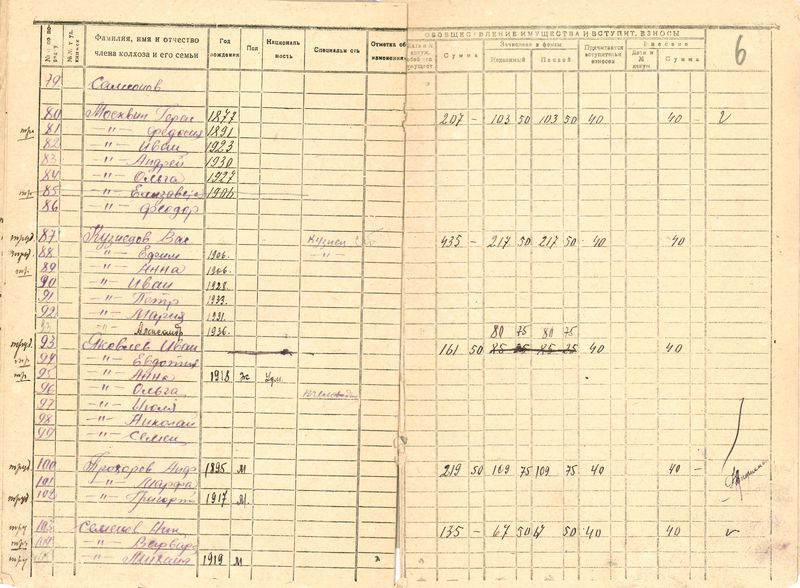 ОБОБЩЕСТВЛЕНИЕ ИМУЩЕСТВА И ВСТУПИТ. ВЗНОСЫ
6
Фамилия, имя и отчество члена колхоза и его семьи
Год рождения
Пол
Националь ность
Специальн сть
Отметка об изменениях
Сумма
Зачислено в фонды
Неделимый
Паевой
Причитается вступительных взносов
Внесено
Дата и №
Сумма
79 Самсонов
80 Москвин Герас 1877 207 - 103 50 103 50 40 40 -
81 -"- Федосия 1891
82 -"- Иван 1923
83 -"- Андрей 1930
84 -"- Ольга 1927
85 -"- Елизавета 1906
86 -"- Феодор
труд. 87 Кузнецов Вас кузнец 435 - 217 50 217 50 40 40
труд. 88 -"- Ефим 1906. -"-
тр. 89 -"- Анна 1906.
90 -"- Иван 1928.
91 -"- Петр
92 -"- Мария 1931.
-"- Александр 1936. 80 75 80 75
труд. 93 Яковлев Иван 161 50 40 40
94 -"- Евдотия
тр 95 -"- Анна 1918 ж Удм.
96 -"- Ольга
97 -"- Июлия
98 -"- Николай
99 -"- Семен
труд. 100 Прохоров Анф 1895 м 219 50 109 75 109 75 40 40 -
101 -"- Марфа
труд 102 -"- Григорт 1917 м.
тру 103 Семенов Ник 135 - 67 50 67 50 40 40
тру -"- Варвара
тру -"- Михаил 1919 м